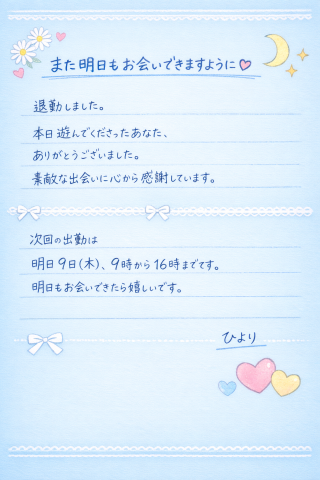 また明日もお会いできますように♡
退勤しました。
本日遊んでくださったあなた、
ありがとうございました。
素敵な出会いに心から感謝しています。
次回の出勤は
明日9日(木)、9時から16時までです。
明日もお会いできたら嬉しいです。
ひより